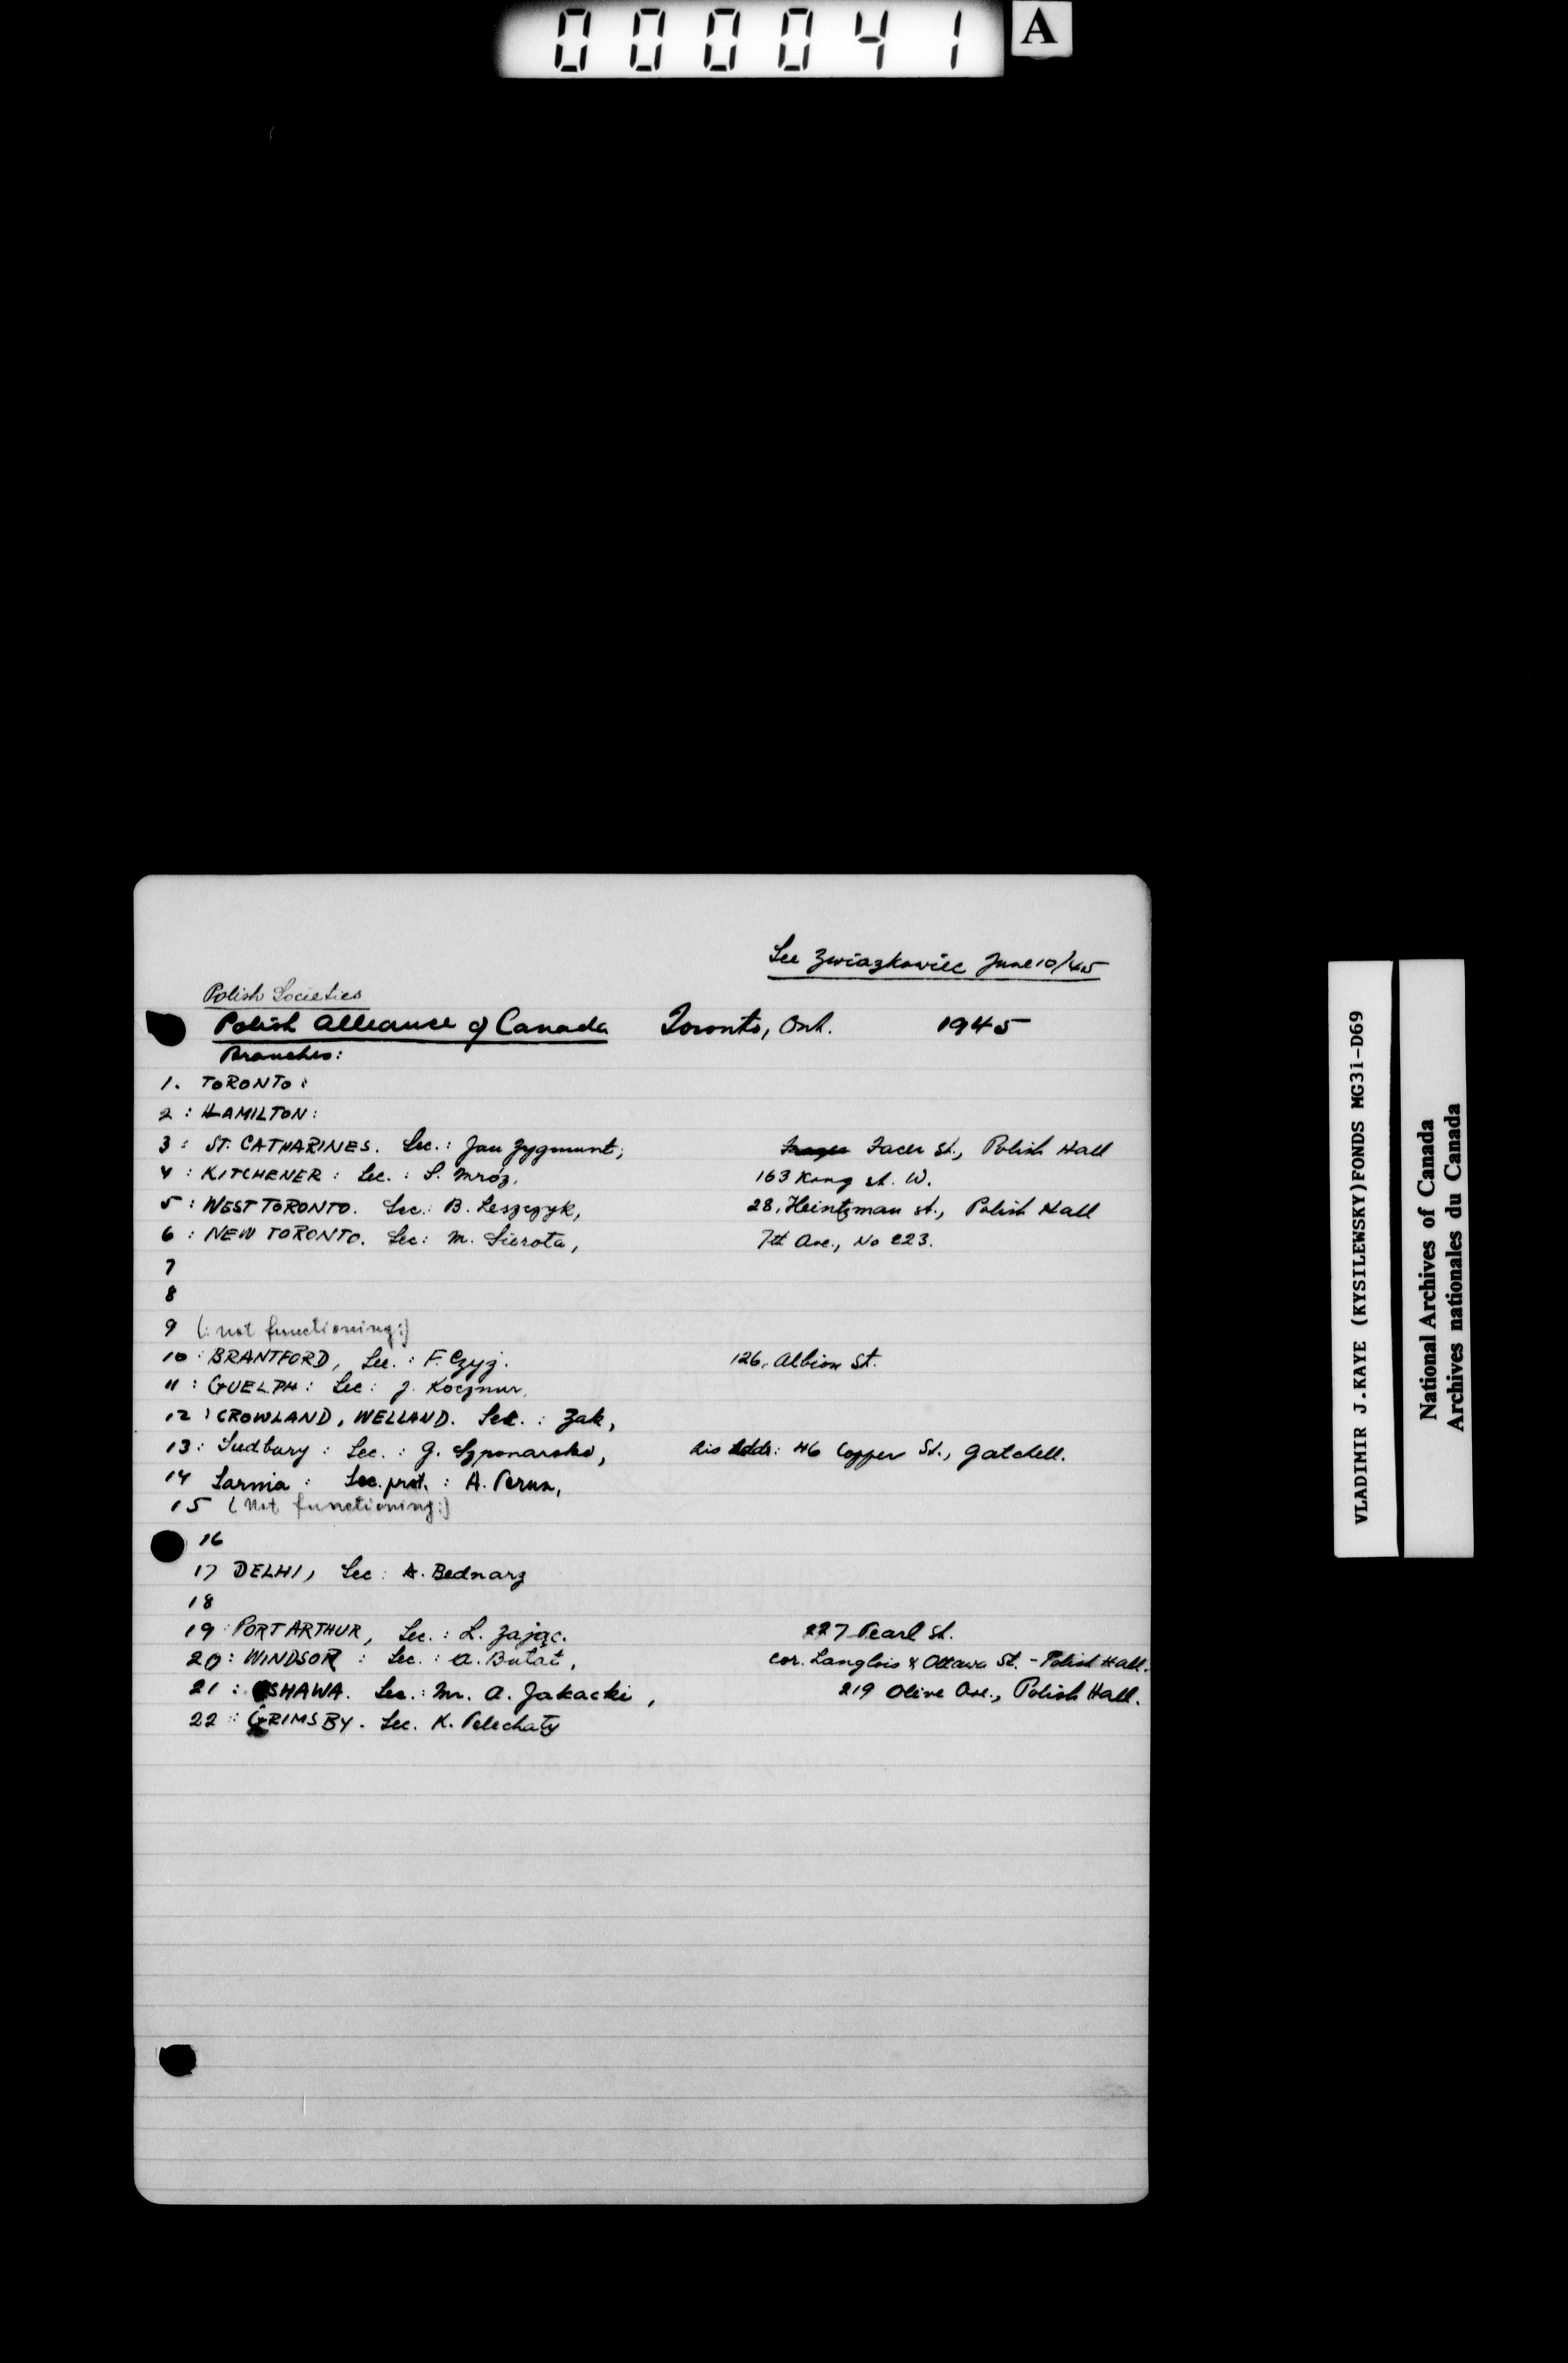 000041 A
See Zwiazkowiec June 10/45
Polish Societies
Polish Alliance of Canada Toronto, Ont. 1945
Branches:
1. TORONTO:
2: HAMILTON:
3: ST. CATHARINES. Sec.: Jan Zygmunt; Facer St., Polish Hall
4: KITCHENER: Sec.: S. Mróz. 163 King st. W.
5: WEST TORONTO. Sec.: B. Leszczyk, 28, Heintzman st., Polish Hall
6: NEW TORONTO. Sec: M. Sierota, 7th Ave., No 223.
7
8
9 (: not functioning:)
10: BRANTFORD, Sec.: F. Czyż. 126, Albion St.
11: GUELPH: Sec: J. Kocznur.
12: CROWLAND, WELLAND. Sec.: Zak,
13: Sudbury: Sec.: G. Szponarski, his Addr: 46 Copper St., Gatchell.
14 Sarnia: Sec. prot.: A. Perun,
15 (Not functioning:)
16
17 DELHI, Sec: A. Bednarz
18
19: PORT ARTHUR, Sec.: L. Zając. 227 Pearl St.
20: WINDSOR: Sec.: A. Butat, cor. Langlois & Ottawa St. - Polish Hall.
21: OSHAWA. Sec.: Mr. A. Jakacki, 219 Olive Ave., Polish Hall.
22: GRIMSBY. Sec. K. Pelechaty
VLADIMIR J.KAYE (KYSILEWSKY)FONDS MG31-D69
National Archives of Canada
Archives nationales du Canada